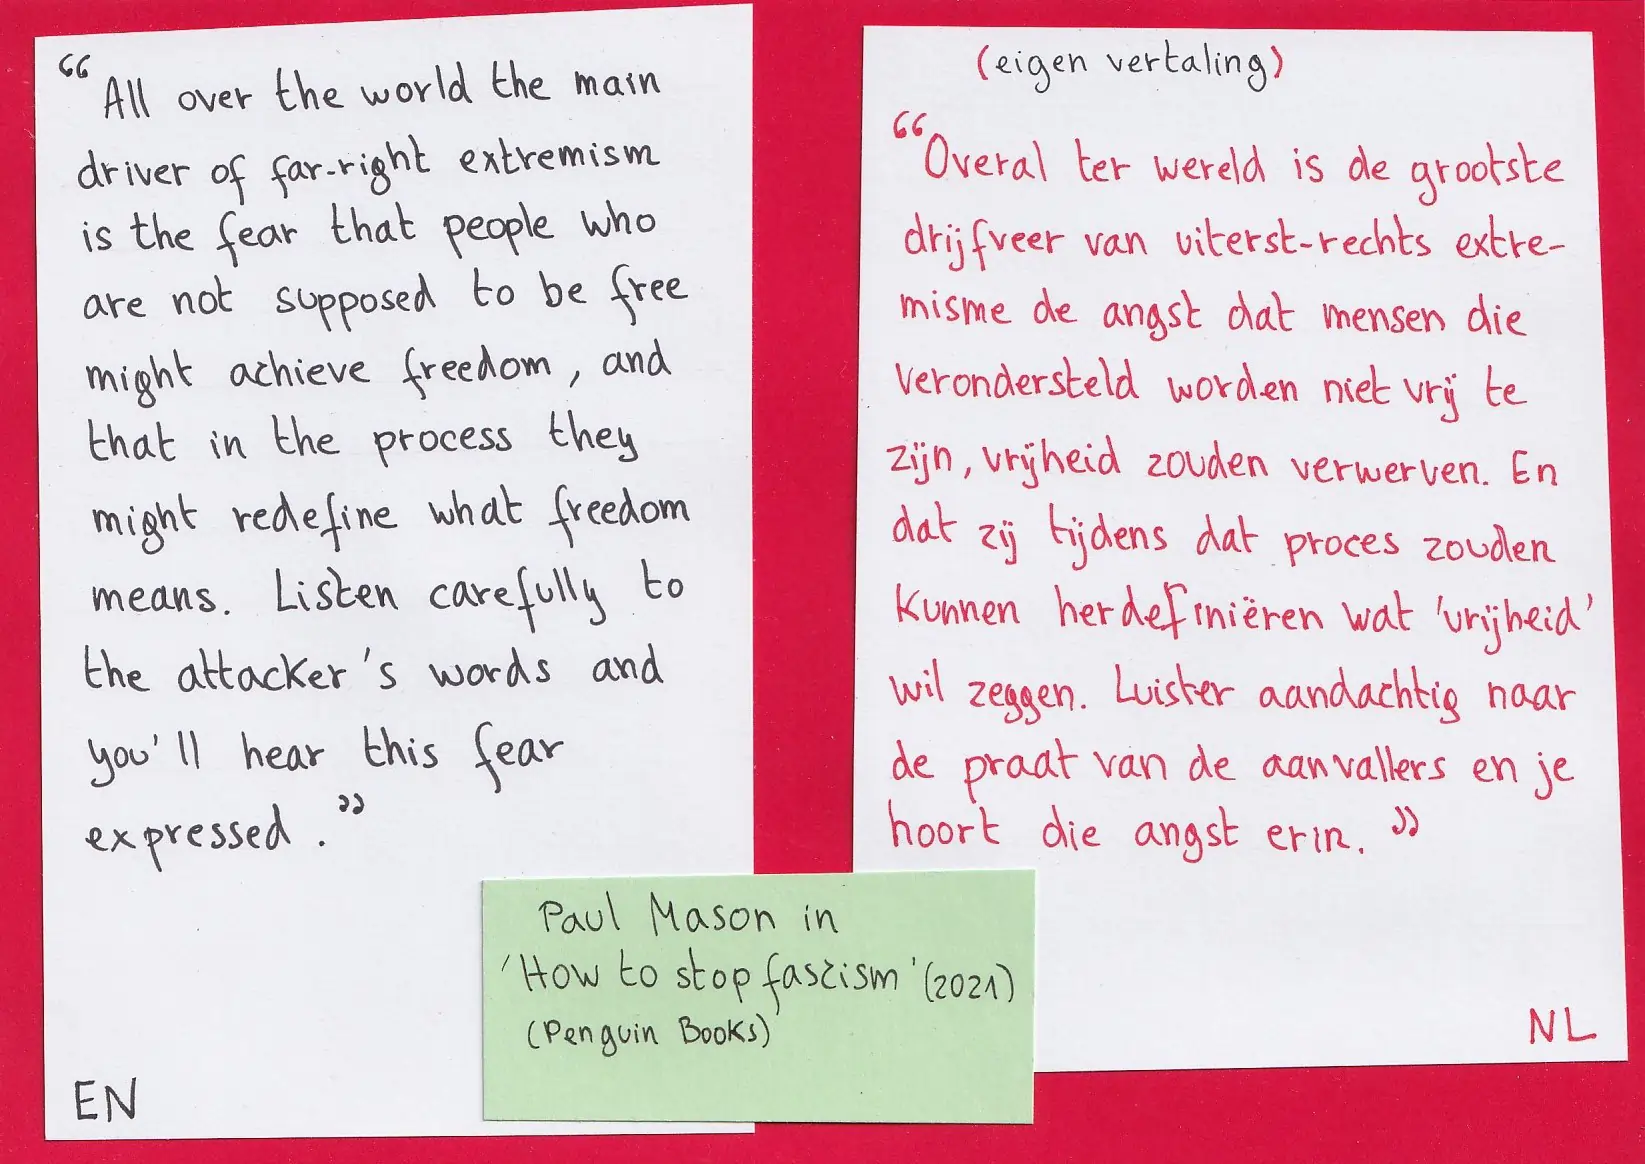 “All over the world the main
driver of far-right extremism
is the fear that people who
are not supposed to be free
might achieve freedom, and
that in the process they
might redefine what freedom
means. Listen carefully to
the attacker's words and
you'll hear this fear
expressed.”
EN
(eigen vertaling)
“Overal ter wereld is de grootste
drijfveer van uiterst-rechts extre-
misme de angst dat mensen die
verondersteld worden niet vrij te
zijn, vrijheid zouden verwerven. En
dat zij tijdens dat proces zouden
kunnen herdefiniëren wat 'vrijheid'
wil zeggen. Luister aandachtig naar
de praat van de aanvallers en je
hoort die angst erin.”
NL
Paul Mason in
'How to stop fascism' (2021)
(Penguin Books)